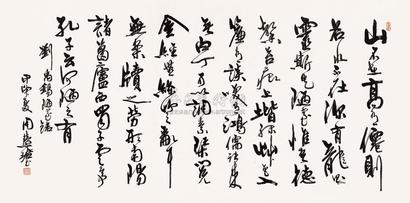 山不在高有僊則
名水不在深有龍則
靈斯是陋室惟吾德
馨苔痕上堦綠草色入
簾青談笑有鴻儒往來
無白丁可以調素琴閱
金經無絲竹之亂耳
無案牘之勞形南陽
諸葛廬西蜀子雲亭
孔子云何陋之有
劉禹錫陋室銘
甲申夏周慧珺